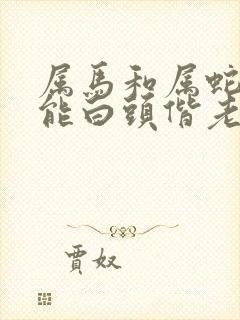 属馬和属蛇
能白頭偕老
賈奴